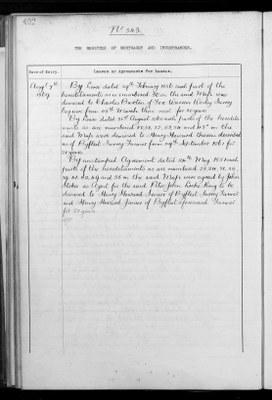 492
No 343.
THE REGISTER OF MORTGAGES AND INCUMBRANCES.
Date of Entry.
Leases or Agreements for Leases.
Augt 7th
1869
By Lease dated 29th February 1856 and part of the
hereditaments as is numbered 30 on the said Map was
demised to Charles Bowles of Fox Warren Wisley Surrey
for years from 25th March then next for 21 years
By Lease dated August 1861 such parts of the heredita-
ments as are numbered and on the
said Maps were demised to Henry Howard therein described
as of Byfleet Surrey Farmer from 29th September 1861 for
21 years
By unstamped Agreement dated May 1851 such
parts of the hereditaments as are numbered
and 38 on the said Maps were agreed by John
as Agent for the said Peter John Locke King to be
demised to Henry Howard Senior of Byfleet Surrey Farmer
and Henry Howard Junior of Byfleet aforesaid Farmer
for 21 years